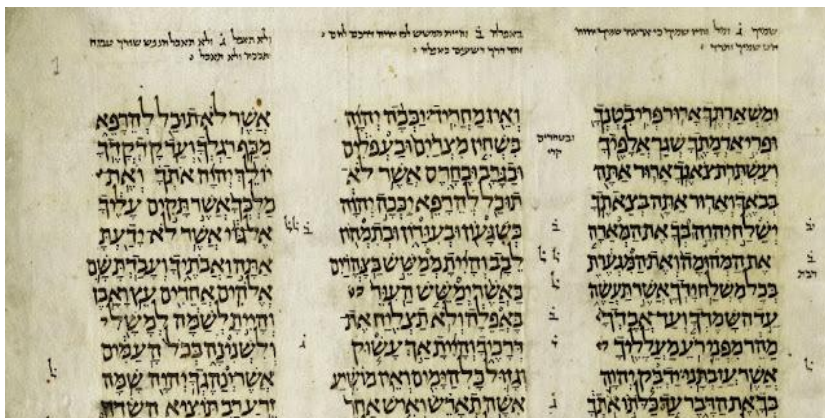 והיו שמיך
ומשארתך ארור פרי בטנך
ופרי אדמתך שגר אלפיך
ועשתרת צאנך ארור אתה
בבאך וארור אתה בצאתך
ישלח יהוה בך את המארה
את המהומה ואת המגערת
בכל משלח ידך אשר תעשה
עד השמדך ועד אבדך
מהר מפני רע מעלליך
אשר עזבתני ידבק יהוה
בך את הדבר עד כלתו אתך
ובטחרים
קרי
באפלה ב והיית ממשש
וחד דרך רשעים כאפלה
ואין מחריד יככה יהוה
בשחין מצרים ובעפלים
ובגרב ובחרס אשר לא
תוכל להרפא יככה יהוה
בשגעון ובעורון ובתמהון
לבב והיית ממשש בצהרים
כאשר ימשש העור
באפלה ולא תצליח את
דרכיך והיית אך עשוק
וגזול כל הימים ואין מושיע
אשה תארש ואיש אחר
ולא תאכל ג ולא תאכל הנפש שורך טבוח
תבכה ולא תאכל
אשר לא תוכל להרפא
מכף רגלך ועד קדקדך
יולך יהוה אתך ואת
מלכך אשר תקים עליך
אל גוי אשר לא ידעת
אתה ואבתיך ועבדת שם
אלהים אחרים עץ ואבן
והיית לשמה למשל
ולשנינה בכל העמים
אשר ינהגך יהוה שמה
זרע רב תוציא השדה